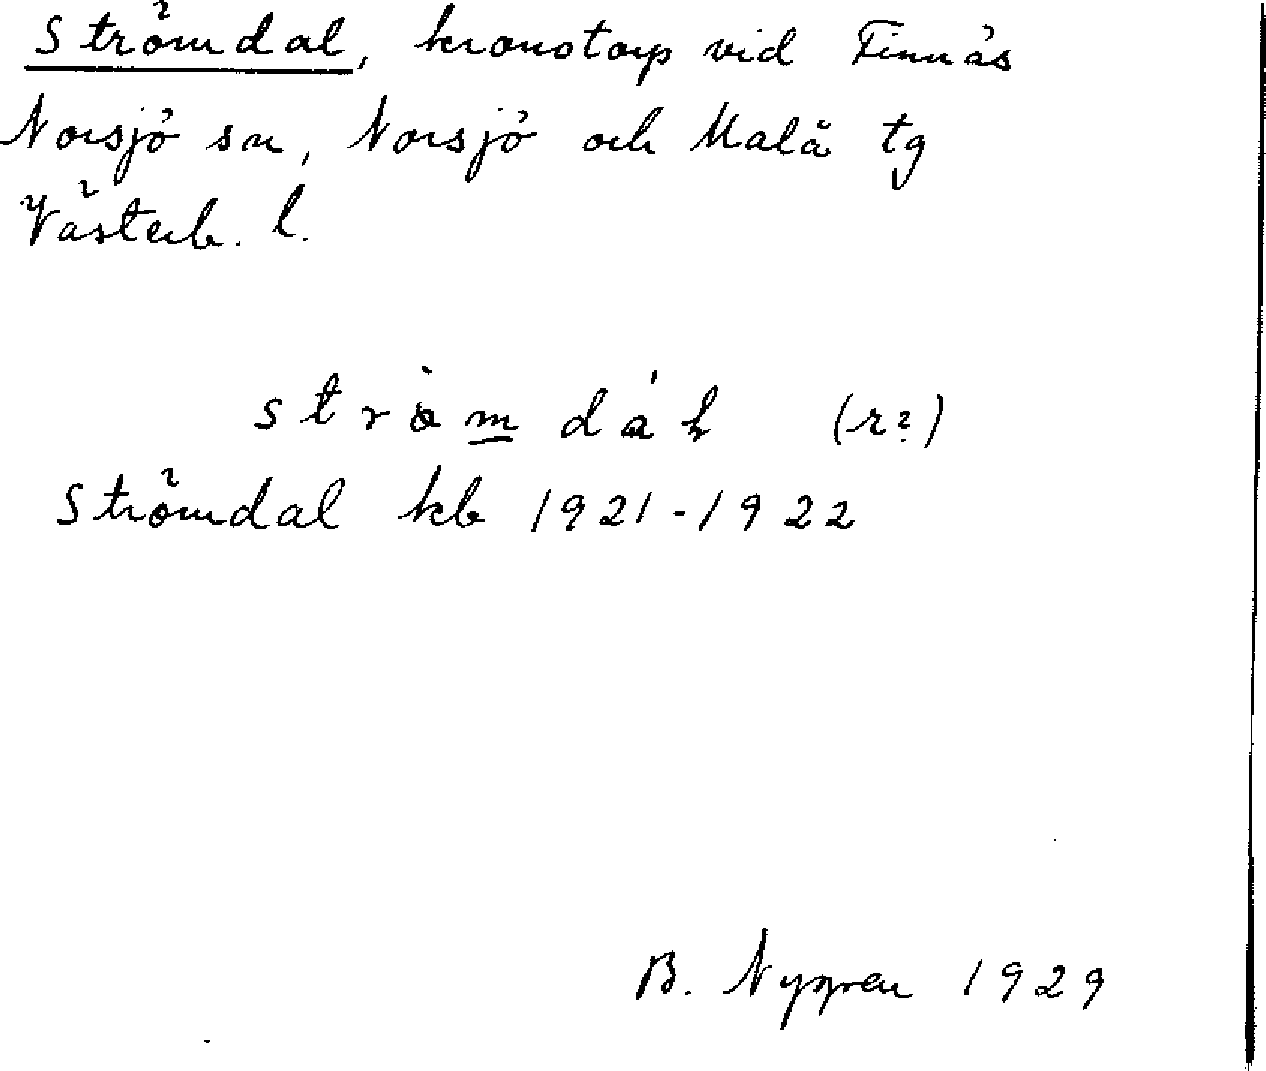 Strömdal, kronotorp vid Finnäs
Norsjö sn, Norsjö och Malå tg
Västerb. l.
(r?)
Strömdal kb 1921-1922
B. Nygren 1929